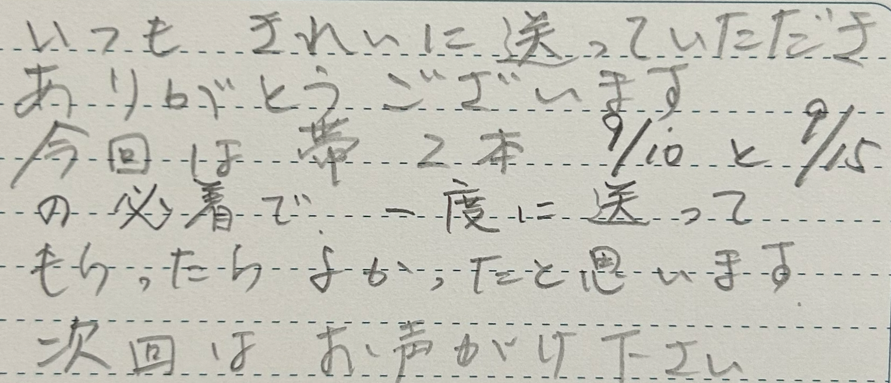 いつも きれいに送っていただき
ありがとうございます
今回は 帯 2本 9/10 と 9/15
の必着で 一度に 送って
もらったらよかったと思います
次回は お声がけ下さい